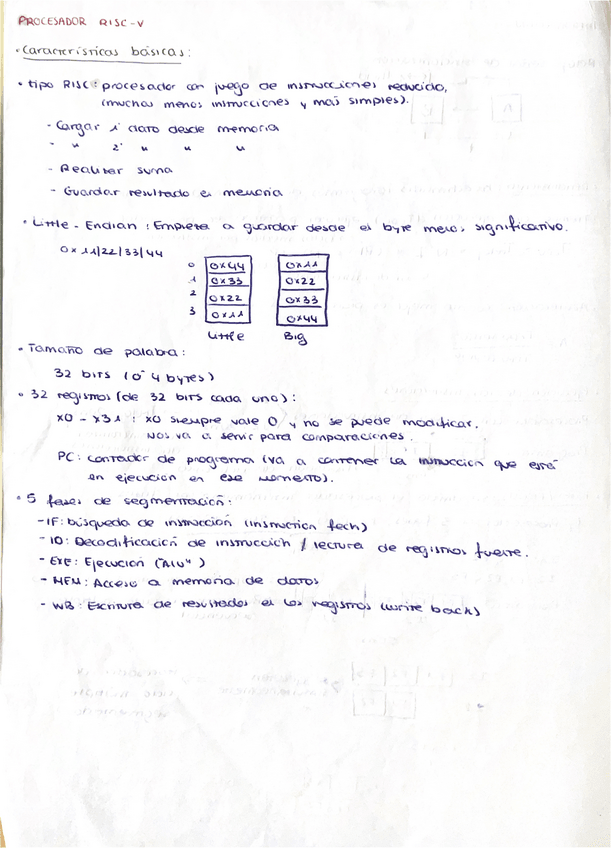 PROCESADOR RISC-V
• Características básicas:
• tipo RISC: procesador con juego de instrucciones reducido,
(muchas menos instrucciones y más simples).
- Cargar 1º dato desde memoria
- " 2º " " "
- Realizar suma
- Guardar resultado en memoria
• Little-Endian: Empieza a guardar desde el byte menos significativo.
0x11/22/33/44
0 0x44 0x11
1 0x33 0x22
2 0x22 0x33
3 0x11 0x44
Little Big
• Tamaño de palabra:
32 bits (o 4 bytes)
• 32 registros (de 32 bits cada uno):
x0 - x31: x0 siempre vale 0 y no se puede modificar.
Nos va a servir para comparaciones.
PC: contador de programa (va a contener la instrucción que está
en ejecución en ese momento).
• 5 fases de segmentación:
- IF: búsqueda de instrucción (instruction fech)
- ID: Decodificación de instrucción / lectura de registros fuente.
- EXE: Ejecución ("ALU")
- MEM: Acceso a memoria de datos
- WB: Escritura de resultados en los registros (write back)